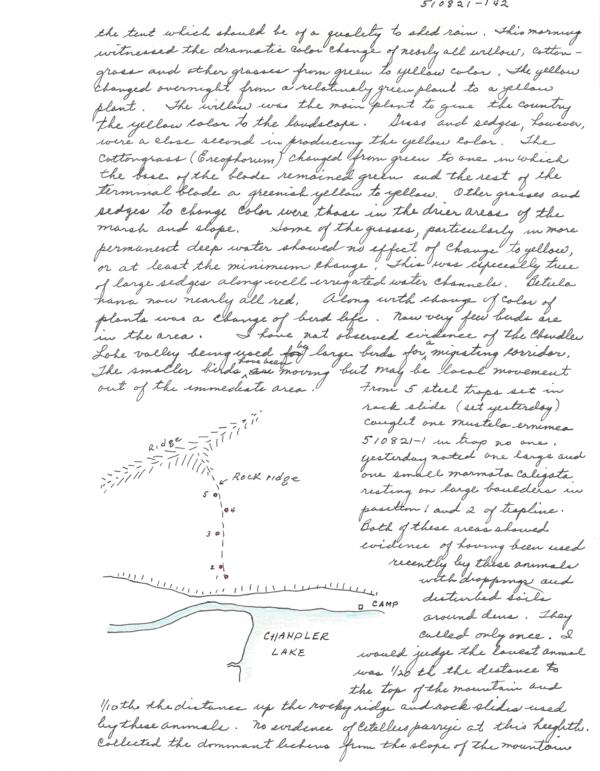 510821-142
the tent which should be of a quality to shed rain. This morning
witnessed the dramatic color change of nearly all willow, cotton-
grass and other grasses from green to yellow color. The yellow
changed overnight from a relatively green plant to a yellow
plant. The willow was the main plant to give the country
the yellow color to the landscape. Grass and sedges, however,
were a close second in producing the yellow color. The
Cottongrass (Ereophorum) changed from green to one in which
the base of the blade remained green and the rest of the
terminal blade a greenish yellow to yellow. Other grasses and
sedges to change color were those in the drier areas of the
marsh and slope. Some of the grasses, particularly in more
permanent deep water showed no effect of change to yellow,
or at least the minimum change. This was especially true
of large sedges along well irrigated water channels. Betula
nana now nearly all red. Along with change of color of
plants was a change of bird life. Now very few birds are
in the area. I have not observed evidence of the Chandler
Lake valley being used by large birds for a migrating corridor.
The smaller birds have been moving but may be local movement
out of the immediate area.
From 5 steel traps set in
rock slide (set yesterday)
caught one Mustela erminea
510821-1 in trap no one.
yesterday noted one large and
one small marmota caligata
resting on large boulders in
position 1 and 2 of trapline.
Both of these areas showed
evidence of having been used
recently by these animals
with droppings and
disturbed soils
around dens. They
called only once. I
would judge the lowest animal
was 1/20 th the distance to
the top of the mountain and
1/10 th the distance up the rocky ridge and rock slides used
by these animals. No evidence of Citellus parryi at this heighth.
Collected the dominant lichens from the slope of the mountain
Ridge
Rock ridge
5
4
3
2
1
CAMP
CHANDLER
LAKE